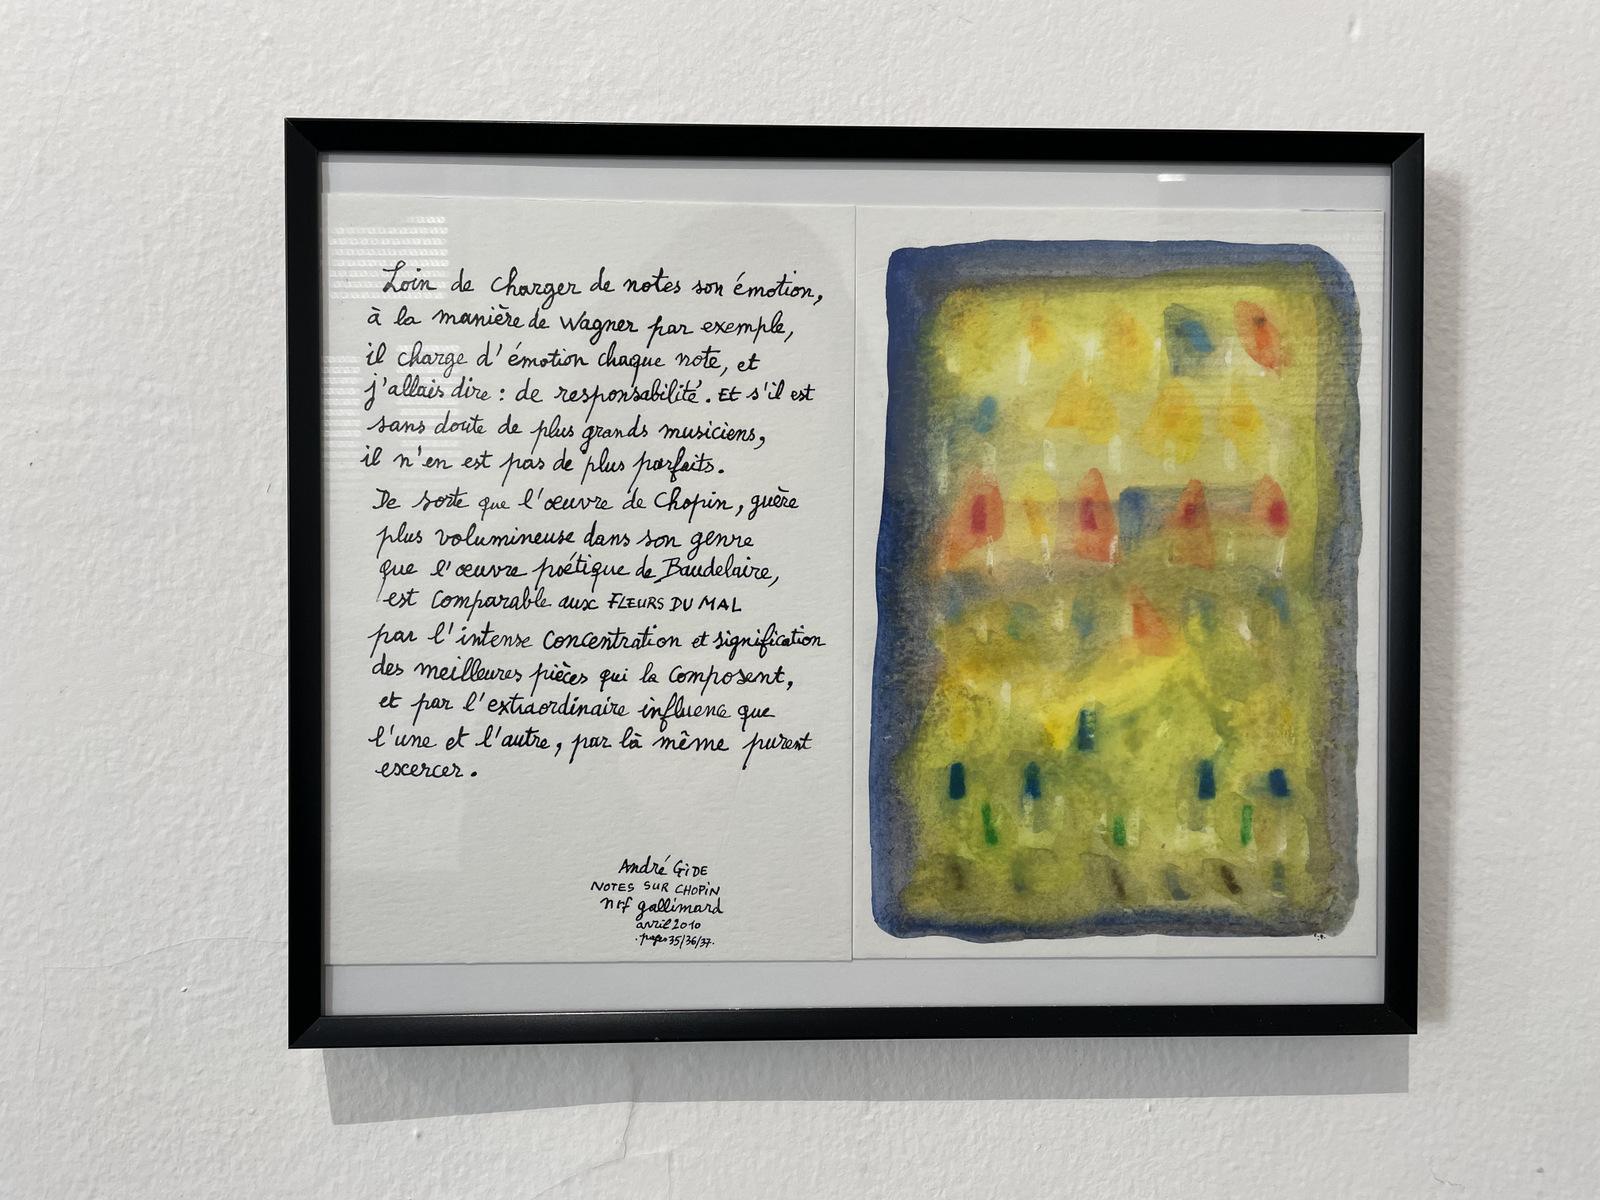 Loin de charger de notes son émotion,
à la manière de Wagner par exemple,
il charge d'émotion chaque note, et
j'allais dire : de responsabilité. Et s'il est
sans doute de plus grands musiciens,
il n'en est pas de plus parfaits.
De sorte que l'œuvre de Chopin, guère
plus volumineuse dans son genre
que l'œuvre poétique de Baudelaire,
est comparable aux FLEURS DU MAL
par l'intense concentration et signification
des meilleures pièces qui la composent,
et par l'extraordinaire influence que
l'une et l'autre, par là même purent
exercer.
André GIDE
NOTES SUR CHOPIN
nrf gallimard
avril 2010
.pages 35/36/37.